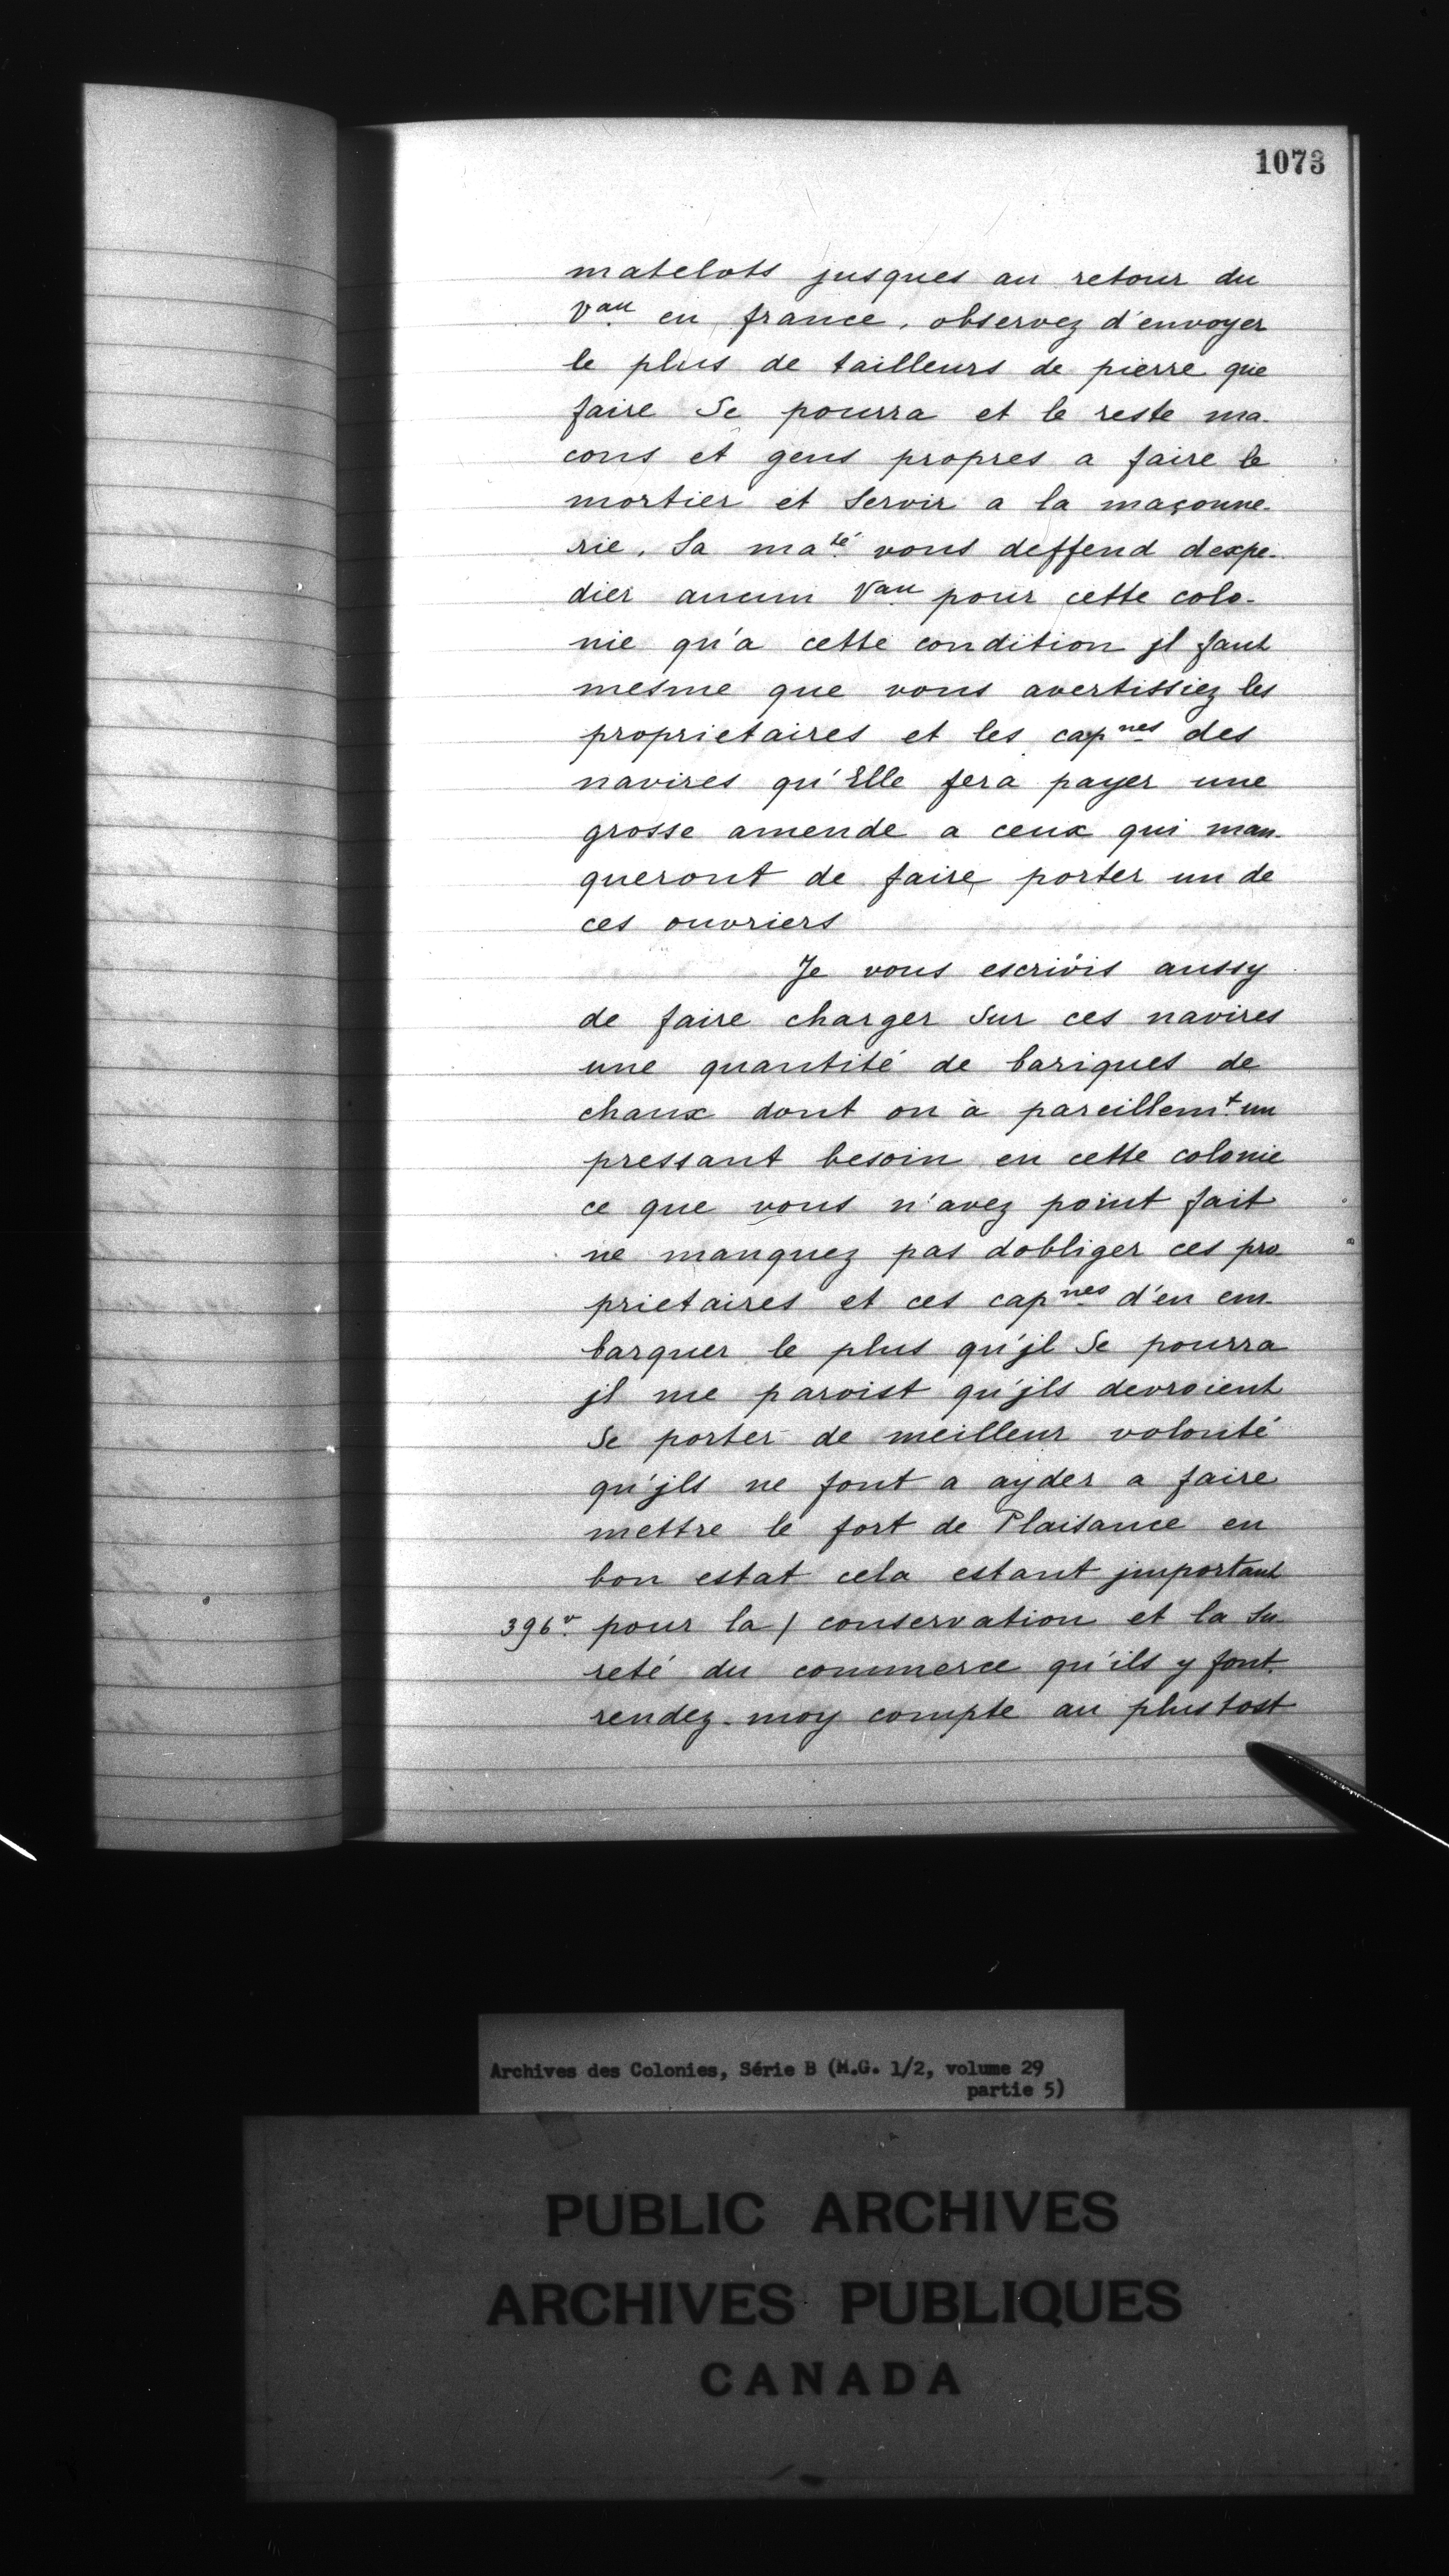 1073
matelots jusques au retour du
Vau en france. observez d'envoyer
le plus de tailleurs de pierre que
faire Se pourra et le reste ma-
cons et gens propres a faire le
mortier et Servir a la maçonne-
rie. Sa maté vous deffend dexpe-
dier aucun Vau pour cette colo-
nie qu'a cette condition jl faut
mesme que vous avertissiez les
proprietaires et les capnes des
navires qu'Elle fera payer une
grosse amende a ceux qui man-
queront de faire porter un de
ces ouvriers
Je vous escrivis aussy
de faire charger Sur ces navires
une quantité de bariques de
chaux dont on à pareillemt un
pressant besoin en cette colonie
ce que vous n'avez point fait
ne manquez pas dobliger ces pro
prietaires et ces capnes d'en em-
barquer le plus qu'jl Se pourra
jl me paroist qu'jls devroient
Se porter de meilleur volonté
qu'jls ne font a ayder a faire
mettre le fort de Plaisance en
bon estat cela estant jmportant
396v. pour la / conservation et la Su-
reté du commerce qu'ils y font.
rendez-moy compte au plustost
Archives des Colonies, Série B (M.G. 1/2, volume 29
partie 5)
PUBLIC ARCHIVES
ARCHIVES PUBLIQUES
CANADA